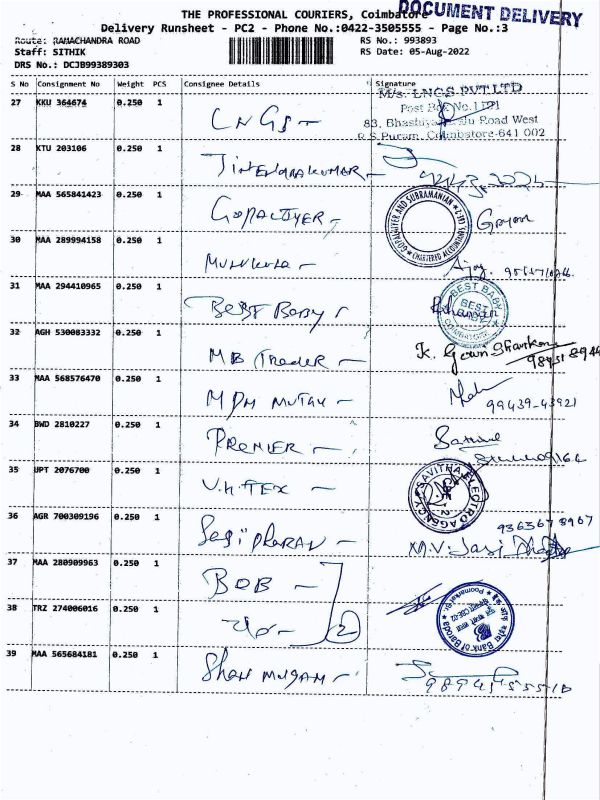 THE PROFESSIONAL COURIERS, Coimbatore
DOCUMENT DELIVERY
Delivery Runsheet - PC2 - Phone No.:0422-3505555 - Page No.:3
Route: RAMACHANDRA ROAD
RS No.: 993893
Staff: SITHIK
RS Date: 05-Aug-2022
DRS No.: DCJB99389303
S No Consignment No Weight PCS Consignee Details Signature
27 KKU 364674 0.250 1
M/s. LNGS PVT LTD
Post Box No.
83, Road West
R.S Puram, Coimbatore-641 002
28 KTU 203106 0.250 1
29 MAA 565841423 0.250 1
GOPALIYER AND SUBRAMANIAN
CHARTERED ACCOUNTANTS
30 MAA 289994158 0.250 1
Ajay.
31 MAA 294410965 0.250 1
BEST BABY
BEST BABY
COIMBATORE
32 AGH 530083332 0.250 1
MB Trader
K. Gowri Shankar
33 MAA 568576470 0.250 1
99439-43921
34 BWD 2810227 0.250 1
PREMIER
35 UPT 2076700 0.250 1
V.H.TEX
SAVITHA ELECTRO AGENCY
36 AGR 700309196 0.250 1
Sasi DHARAN
9363678967
37 MAA 280909963 0.250 1
BOB
38 TRZ 274006016 0.250 1
2
Bank of Baroda
39 MAA 565684181 0.250 1
Shan mugam